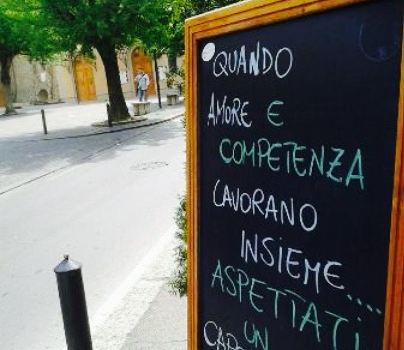 QUANDO
AMORE E
COMPETENZA
LAVORANO
INSIEME....
ASPETTATI
UN